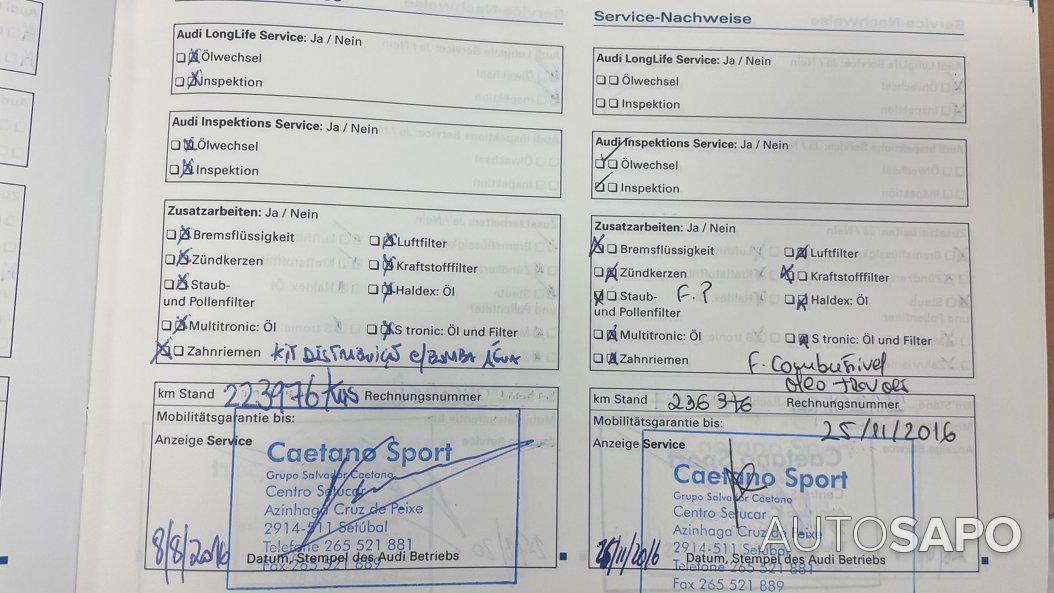 Audi LongLife Service: Ja / Nein
Ölwechsel
Inspektion
Audi Inspektions Service: Ja / Nein
Ölwechsel
Inspektion
Zusatzarbeiten: Ja / Nein
Bremsflüssigkeit
Luftfilter
Zündkerzen
Kraftstofffilter
Staub-
und Pollenfilter
Haldex: Öl
Multitronic: Öl
S tronic: Öl und Filter
Zahnriemen KIT DISTRIBUIÇÃO c/BOMBA ÁGUA
km Stand 223976 kms Rechnungsnummer
Mobilitätsgarantie bis:
Anzeige Service
Caetano Sport
Grupo Salvador Caetano
Centro Setucar
Azinhaga Cruz de Peixe
2914-511 Setúbal
Telefone 265 521 881
8/8/2016 Datum, Stempel des Audi Betriebs
Fax 265 521 889
Service-Nachweise
Audi LongLife Service: Ja / Nein
Ölwechsel
Inspektion
Audi Inspektions Service: Ja / Nein
Ölwechsel
Inspektion
Zusatzarbeiten: Ja / Nein
Bremsflüssigkeit
Luftfilter
Zündkerzen
Kraftstofffilter
Staub- F. P
und Pollenfilter
Haldex: Öl
Multitronic: Öl
S tronic: Öl und Filter
Zahnriemen
F. Combustivel
óleo travões
km Stand 236376 Rechnungsnummer
Mobilitätsgarantie bis: 25/11/2016
Anzeige Service
Caetano Sport
Grupo Salvador Caetano
Centro Setucar
Azinhaga Cruz de Peixe
2914-511 Setúbal
25/11/2016 Datum, Stempel des Audi Betriebs
Telefone 265 521 881
Fax 265 521 889
AUTOSAPO